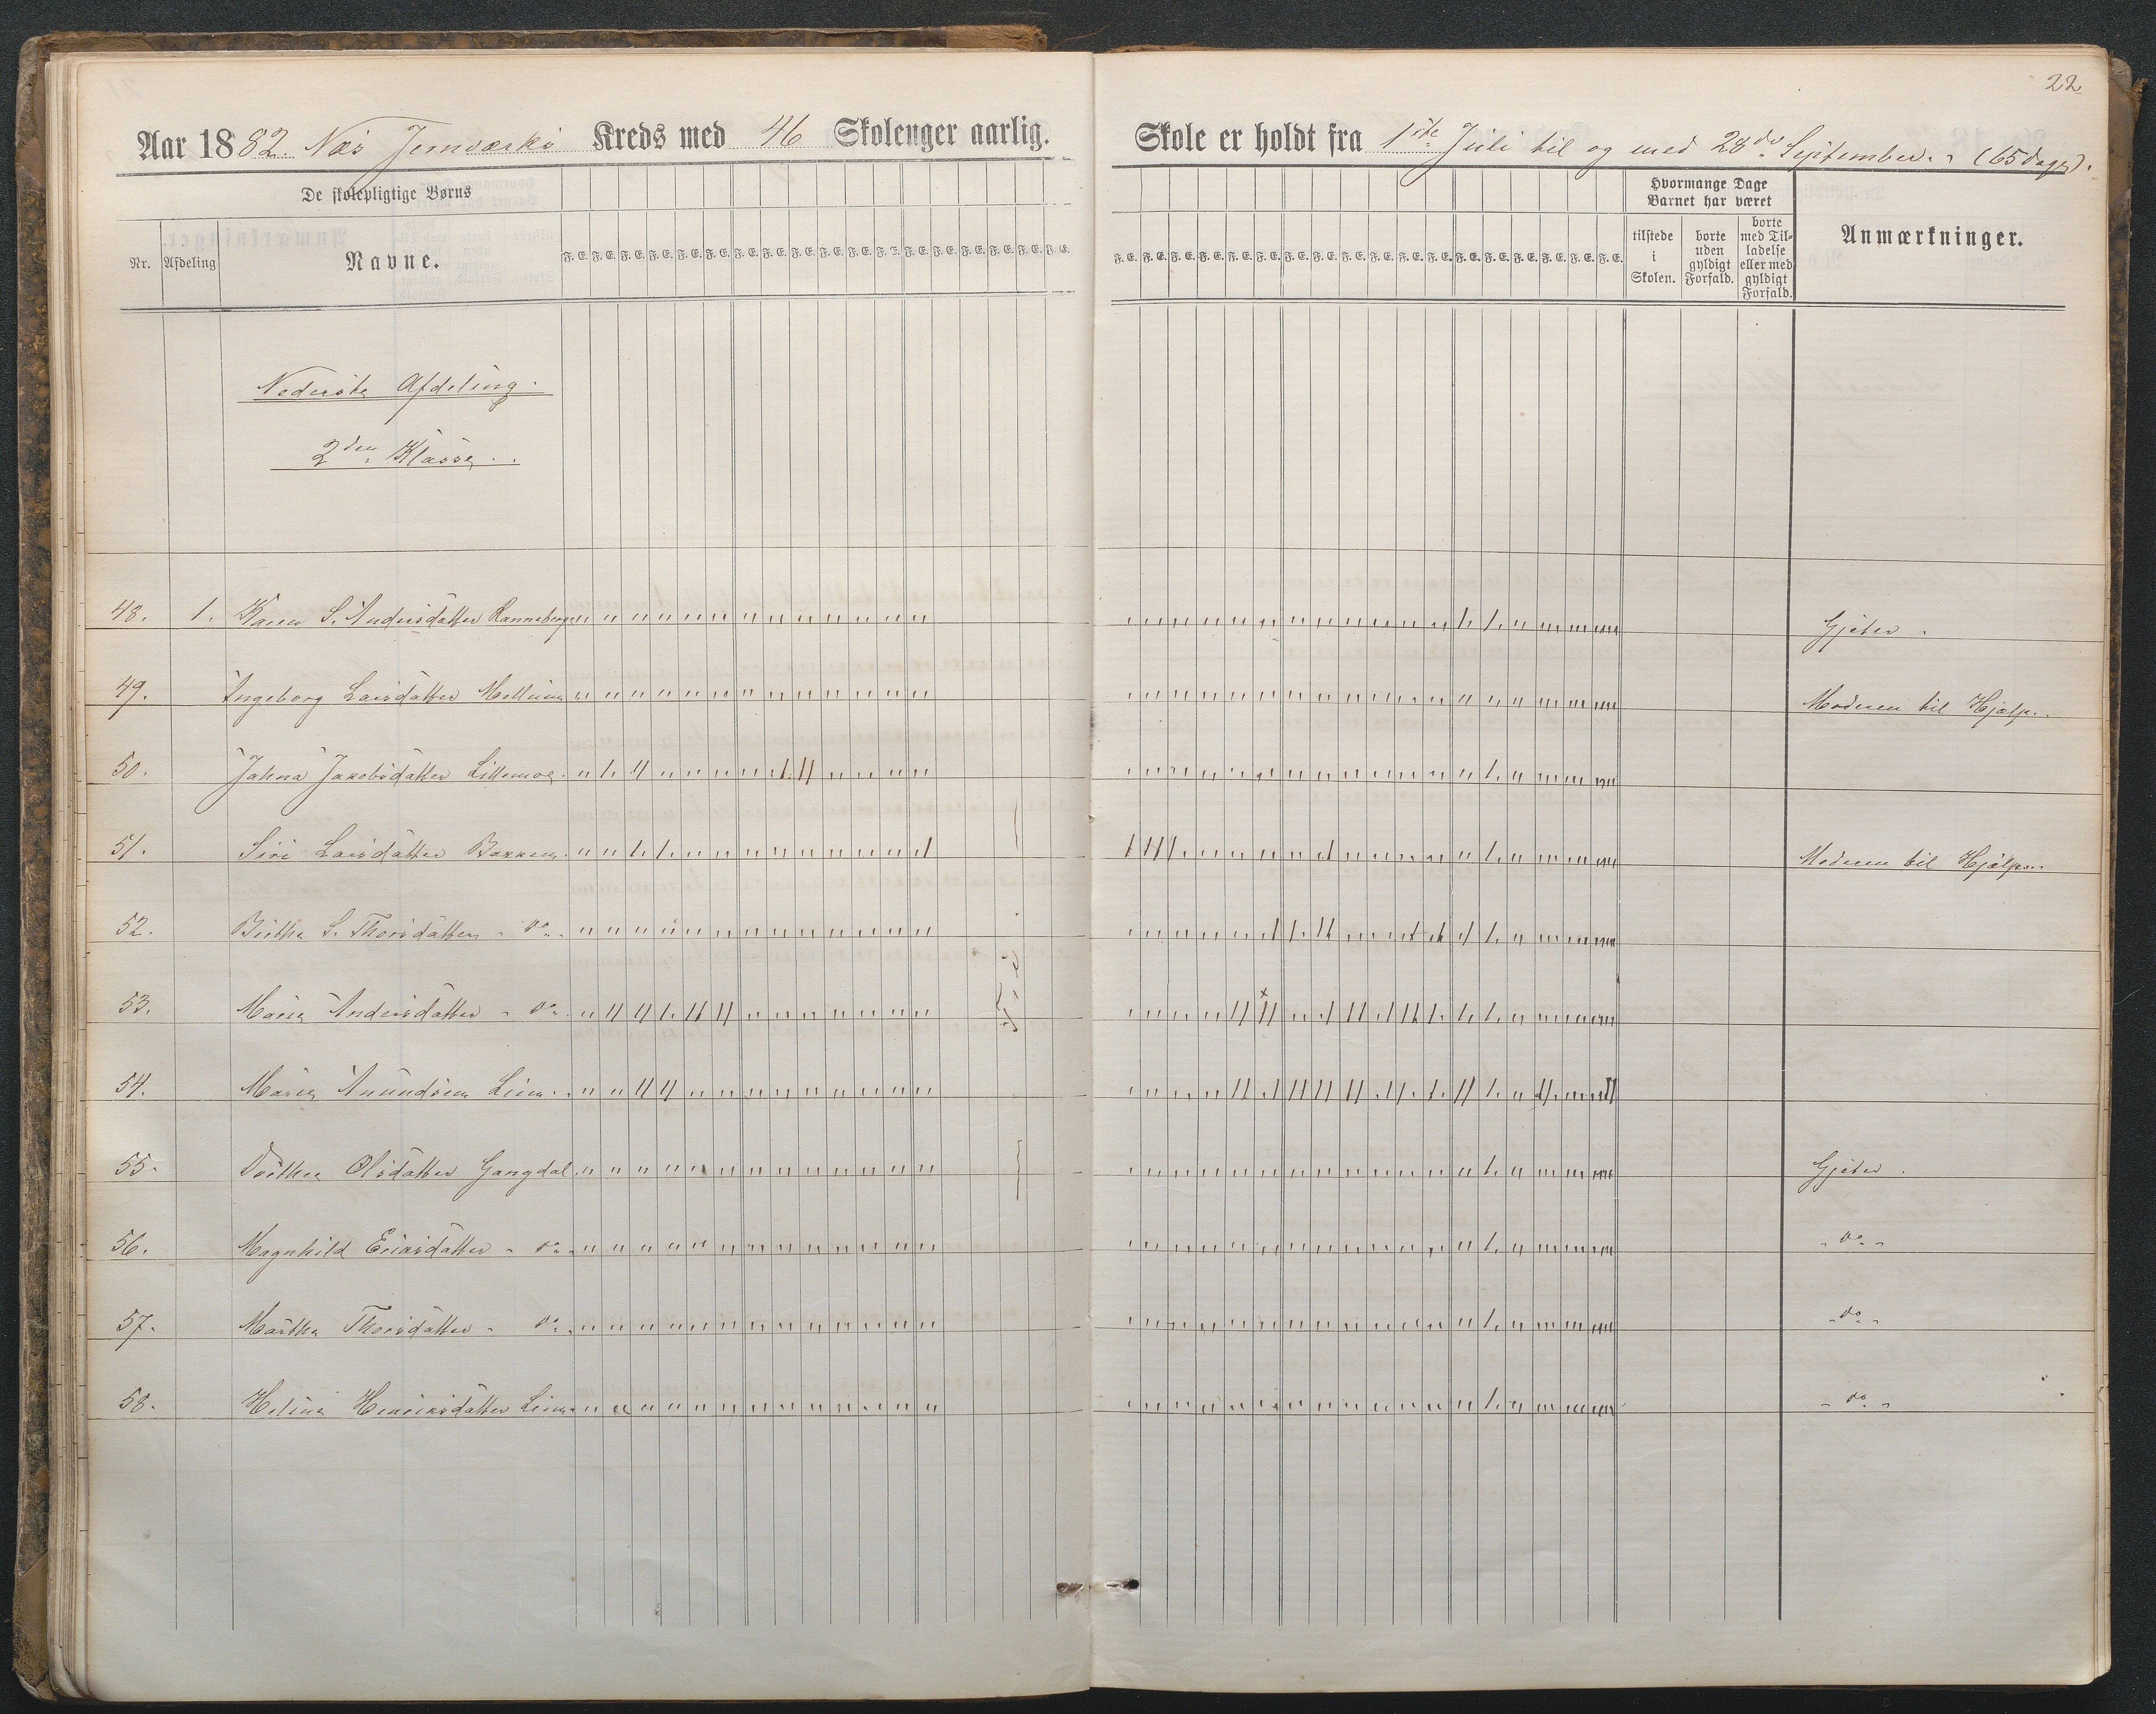 22
Aar 1882. Næs Jernværks Kreds med 46 Skolenger aarlig. Skole er holdt fra 1ste Juli til og med 28de September. (65 dage).
De skolepligtige Børns
Nr. Afdeling Navne.
F. E. F. E. F. E. F. E. F. E. F. E. F. E. F. E. F. E. F. E. F. E. F. E. F. E. F. E. F. E. F. E. F. E. F. E.
Hvormange Dage Barnet har været
tilstede i Skolen.
borte uden gyldigt Forfald.
borte med Tilladelse eller med gyldigt Forfald.
Anmærkninger.
Nederste Afdeling.
2den Klasse.
48. 1. Karen S. Andersdatter Ranneberg Gjeter.
49. Ingeborg Larsdatter Moderen til Hjælp.
50. Jahna Jakobsdatter
51. Siri Larsdatter Bakken Moderen til Hjælp.
52. Birthe S. Thorsdatter - do -
53. Maria Andersdatter - do -
54. Maria Anundsen Lien
55. Dorthea Olsdatter Gangdal Gjeter.
56. Magnhild Eriksdatter - do - - do -
57. Martha Thorsdatter - do - - do -
58. Helina Henriksdatter Lien - do -